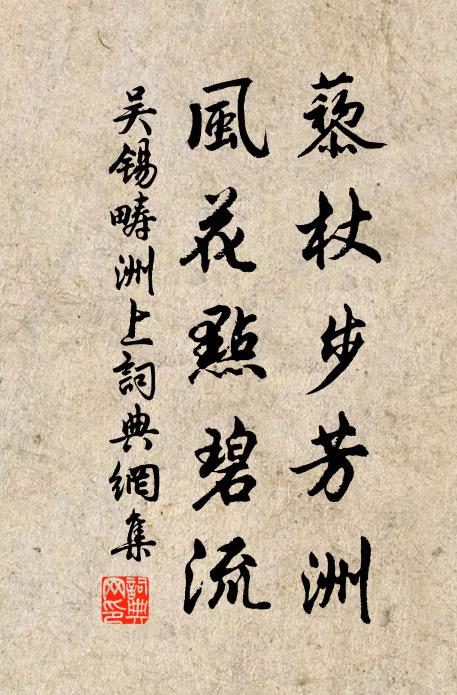 藜杖步芳洲
風花點碧流
吴錫疇洲上詞典網集
詞典網印